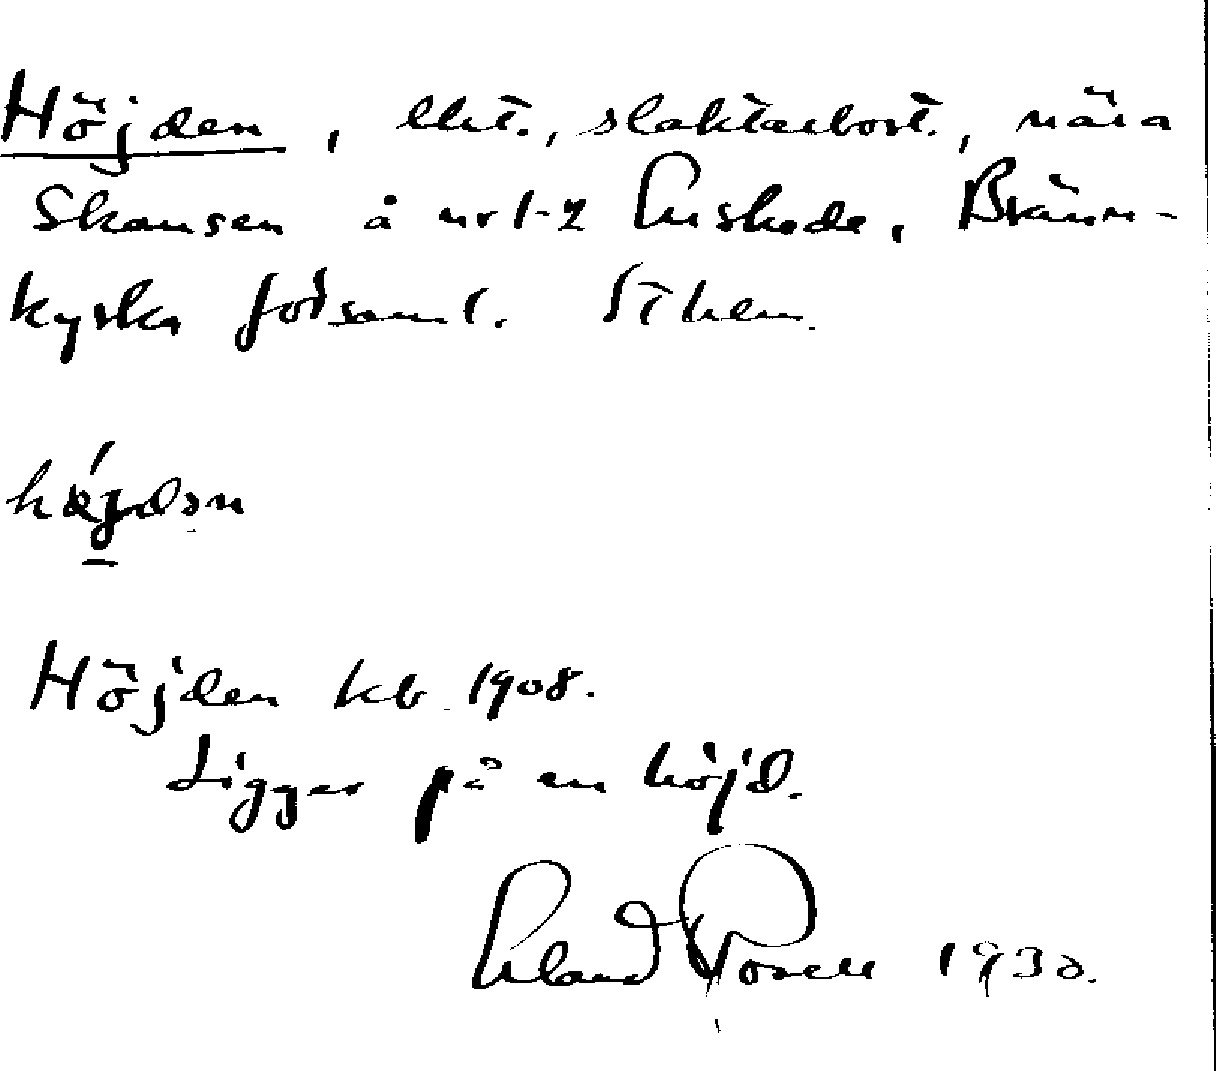 Höjden, lht., slaktarbost., nära
Skansen å nr 1-2 Enskede, Bränn-
kyrka församl. Sthlm.
Höjden kb 1908.
Ligger på en höjd.
Erland Rosell 1930.